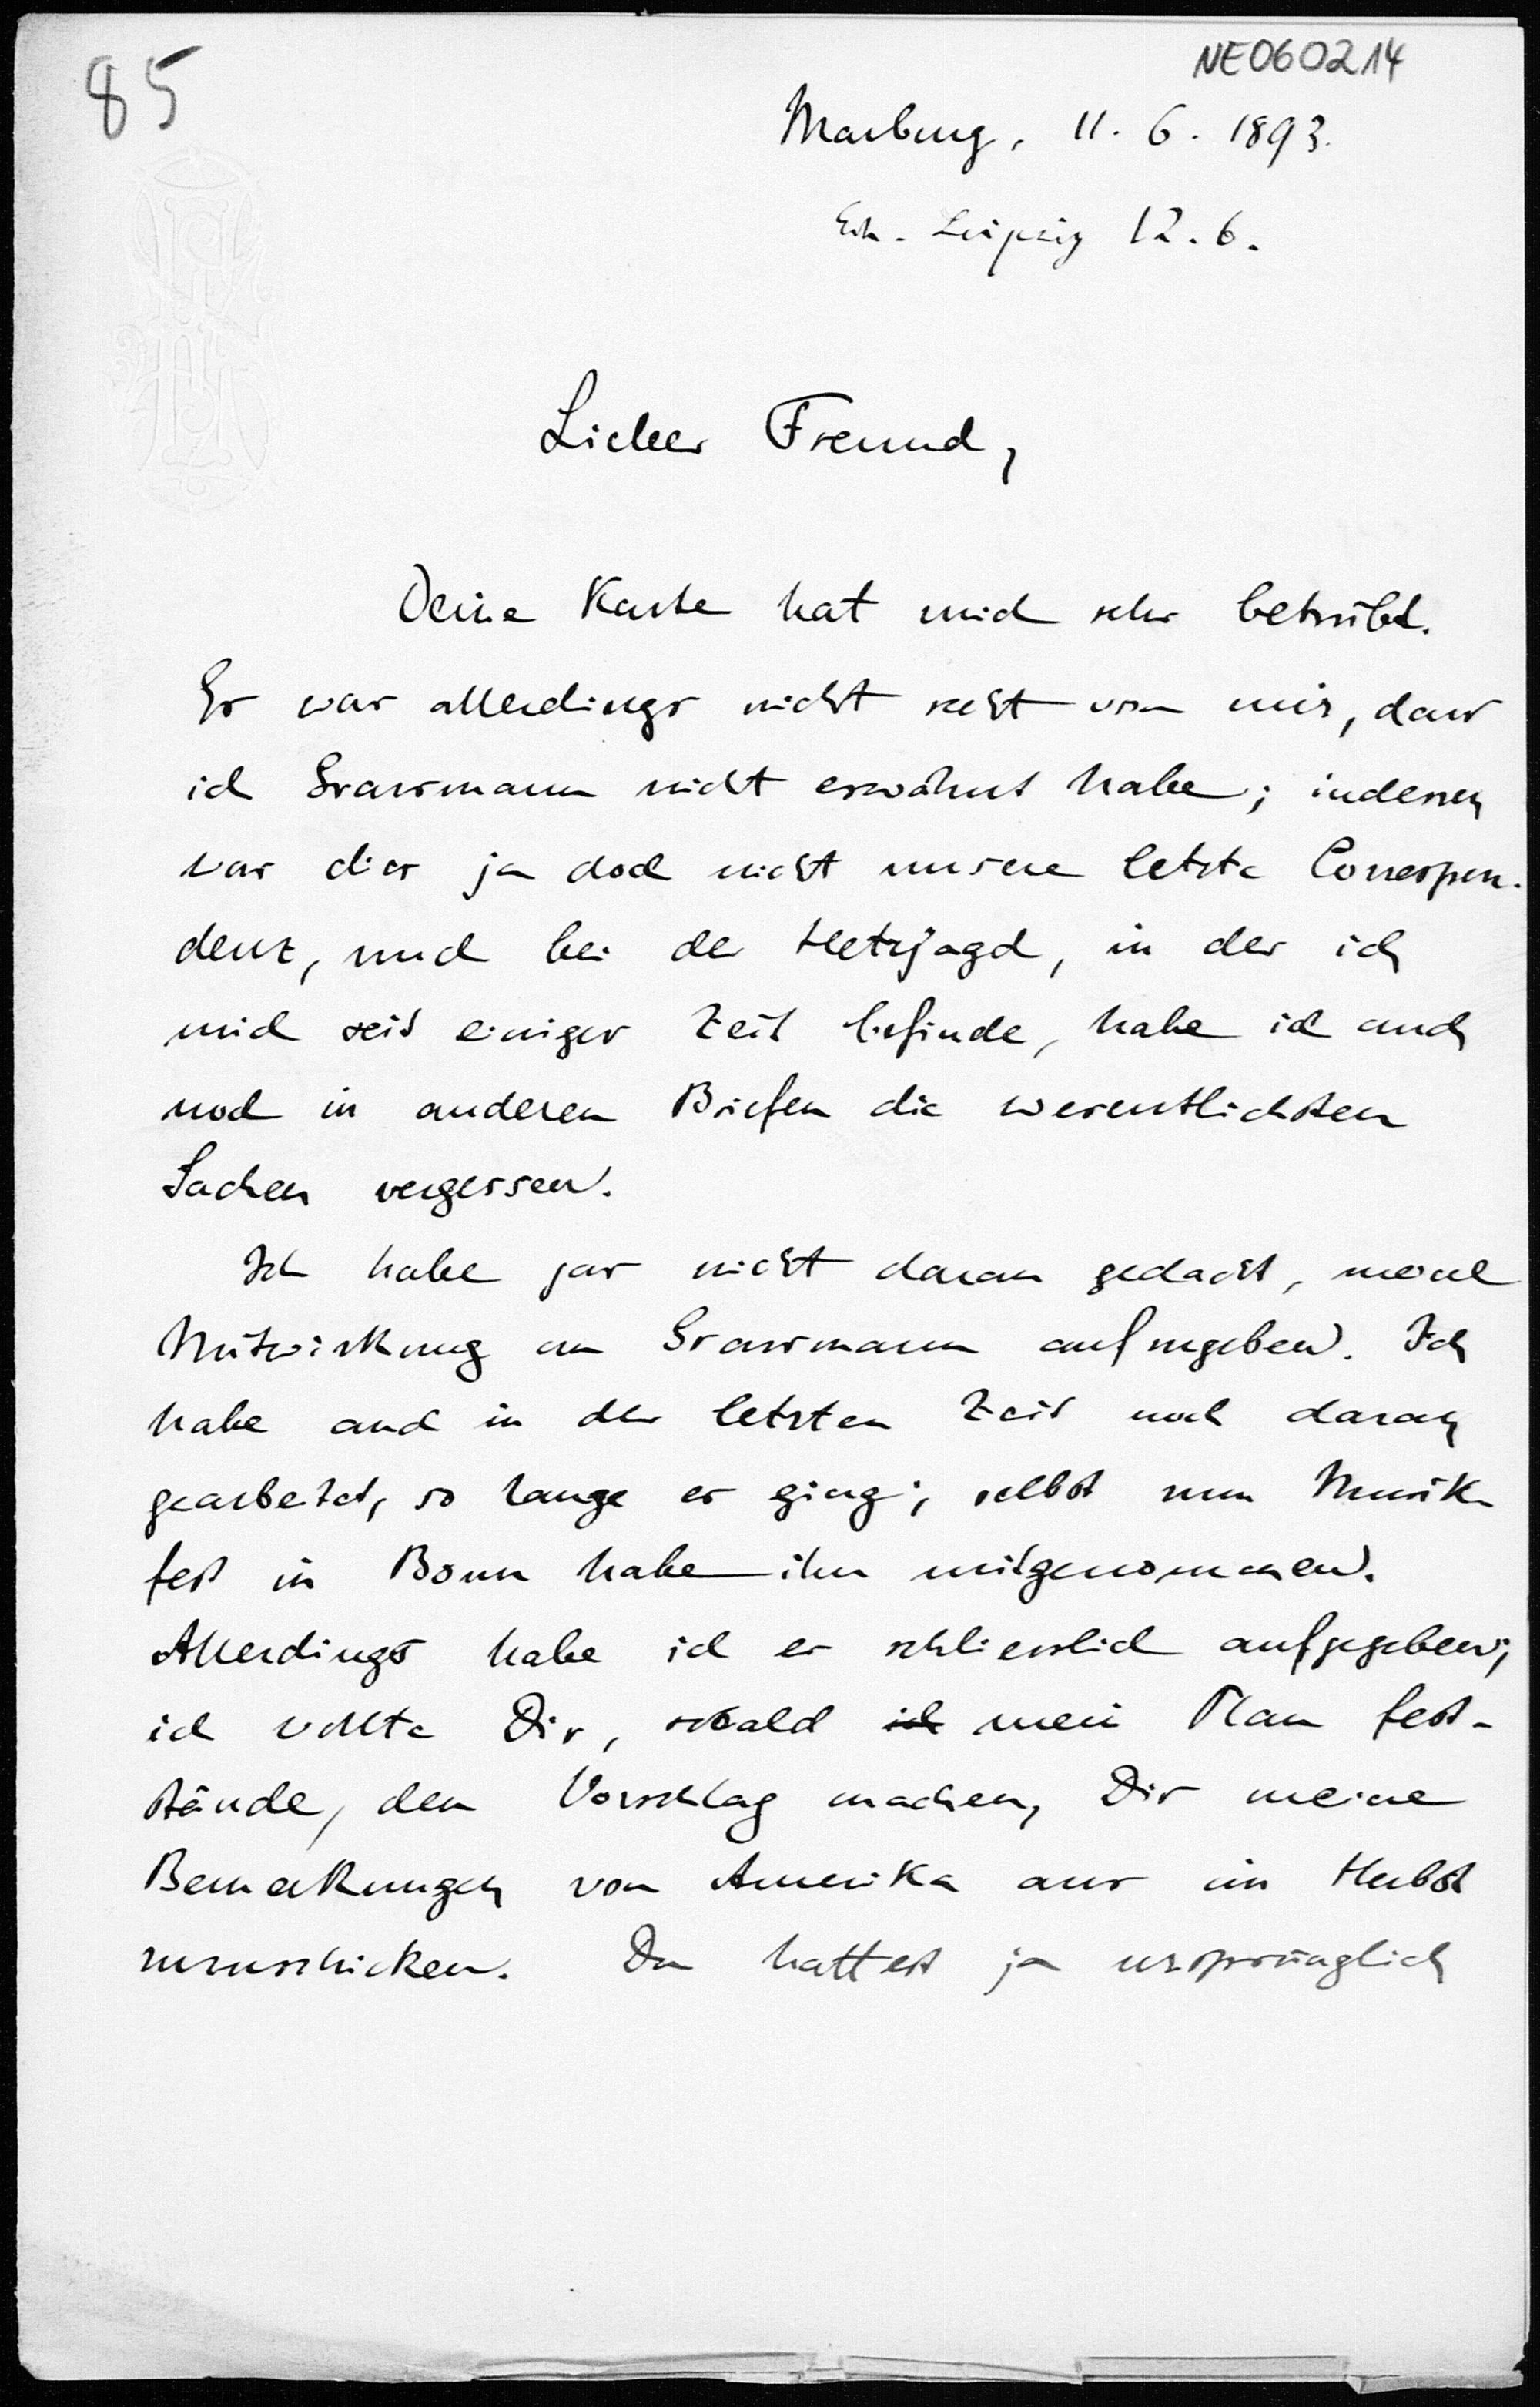 85
NE060214
Marburg, 11. 6. 1893.
Erh. Leipzig 12. 6.
Lieber Freund,
Deine Karte hat mich sehr betrübt.
Es war allerdings nicht recht von mir, dass
ich Grassmann nicht erwähnt habe; indessen
war dies ja doch nicht unsere letzte Correspon-
denz, und bei der Hetzjagd, in der ich
mich seit einiger Zeit befinde, habe ich auch
noch in anderen Briefen die wesentlichsten
Sachen vergessen.
Ich habe gar nicht daran gedacht, meine
Mitwirkung an Grassmann aufzugeben. Ich
habe auch in der letzten Zeit noch daran
gearbeitet, so lange es ging; selbst zum Musik-
fest in Bonn habe ihn mitgenommen.
Allerdings habe ich es schliesslich aufgegeben;
ich wollte Dir, sobald ich mein Plan fest-
stände, den Vorschlag machen, Dir meine
Bemerkungen von Amerika aus im Herbst
zuzuschicken. Du hattest ja ursprünglich